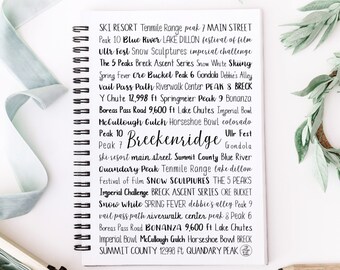 SKI RESORT Tenmile Range peak 7 MAIN STREET
Peak 10 Blue River LAKE DILLON festival of film
Ullr Fest Snow Sculptures imperial challenge
The 5 Peaks Breck Ascent Series Snow White Skiing
Spring Fever Ore Bucket Peak 6 Gondola Debbie's Alley
Vail Pass Path Riverwalk Center PEAK 8 BRECK
Y Chute 12,998 ft Springmeier Peak 9 Bonanza
Boreas Pass Road 9,600 ft Lake Chutes Imperial Bowl
McCullough Gulch Horseshoe Bowl colorado
Peak 10 Breckenridge Ullr Fest
Peak 7 Gondola
ski resort main street Summit County Blue River
Quandary Peak Tenmile Range lake dillon
Festival of Film SNOW SCULPTURES THE 5 PEAKS
Imperial Challenge BRECK ASCENT SERIES ORE BUCKET
Snow White SPRING FEVER debbie's alley Peak 9
vail pass path riverwalk center peak 8 Peak 6
Boreas Pass Road BONANZA 9,600 ft Lake Chutes
Imperial Bowl McCullough Gulch Horseshoe Bowl BRECK
SUMMIT COUNTY 12,998 ft QUANDARY PEAK